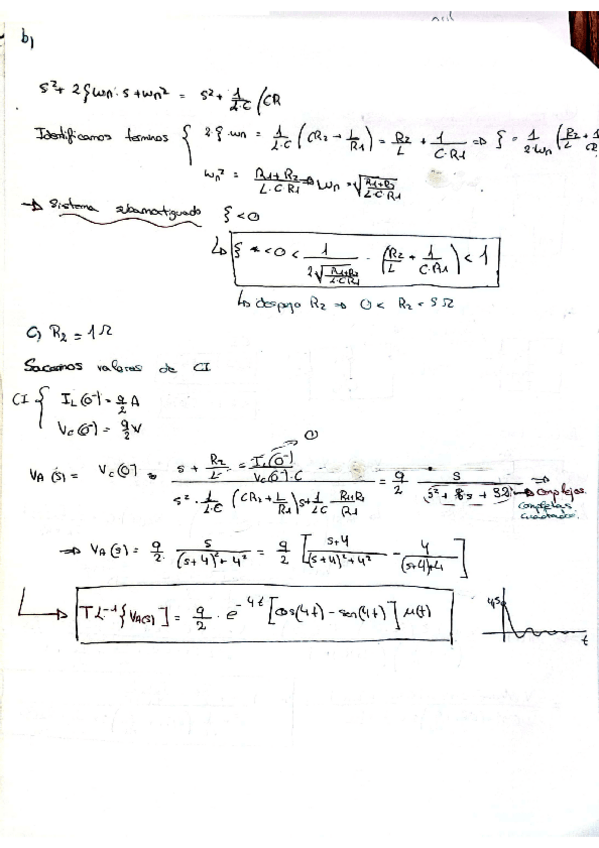 b)
s² + 2ξωn·s + ωn² = s² + 1/L·C (CR
Identificamos terminos { 2·ξ·ωn = 1/L·C (CR2 + L/R1) = R2/L + 1/C·R1 => ξ = 1/2·ωn (R2/L + 1/CR
ωn² = R1+R2/L·C·R1 => ωn = √(R1+R2/L·C·R1)
→ Sistema subamortiguado ξ < 0
↳ ξ < 0 < 1/(2√(R1+R2/L·C·R1)) · (R2/L + 1/C·R1) < 1
↳ despejo R2 => 0 < R2 < 5 Ω
C) R2 = 1 Ω
Sacamos valores de CI
CI { IL(0⁻) = 9/2 A
Vc(0⁻) = 9/2 V
VA(s) = Vc(0⁻) · (s + R2/L - IL(0⁻)/Vc(0⁻)·C) / (s² · 1/L·C (CR2 + L/R1)s + 1/LC R1+R2/R1) = 9/2 s/(s² + 8s + 32) => complejos
completas
cuadrados
=> VA(s) = 9/2 · s/((s+4)² + 4²) = 9/2 [(s+4)/((s+4)² + 4²) - 4/((s+4)+4]
↳ TL⁻¹{VA(s)] = 9/2 · e^(-4t) [cos(4t) - sen(4t)] μ(t)
4,5
t